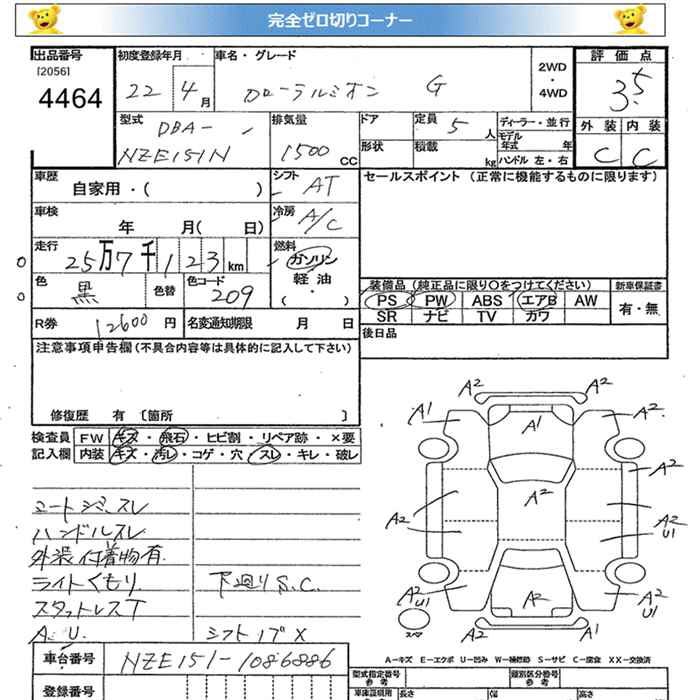 完全ゼロ切りコーナー
出品番号 初度登録年月 車名・グレード 2WD・4WD 評価点
[2056]
4464 22年4月 カローラルミオン G 3.5
型式 DBA- 排気量 ドア 定員 5人 ディーラー・並行 外装 内装
NZE151N 1500cc 形状 積載 kg モデル年式 年 ハンドル 左・右 C C
車歴 自家用・( ) シフト AT セールスポイント (正常に機能するものに限ります)
車検 年 月( 日) 冷房 A/C
走行 25万7千123km 燃料 ガソリン
色 黒 色替 色コード 209 軽油・( )
装備品 (純正品に限り○をつけてください) 新車保証書
PS PW ABS エアB AW 有・無
SR ナビ TV カワ
R券 12600円 名変通知期限 月 日 後日品
注意事項申告欄(不具合内容等は具体的に記入して下さい)
修復歴 有 〔箇所 〕
検査員 FW キズ・飛石・ヒビ割・リペア跡・×要
記入欄 内装 キズ・汚レ・コゲ・穴・スレ・キレ・破レ
A2 A2
A1 A1 A2
A2
A2 A2 A2U1
A2U1 A2 A2U1
A2 A2
スペ
シートシミ、スレ
ハンドルスレ
外装付着物有
ライトくもり 下廻りS.C.
スタットレスT
A.U. シフトノブX
A-キズ E-エクボ U-凹み W-補修跡 S-サビ C-腐食 XX-交換済
車台番号 NZE151-1086886
型式指定番号 参考 類別区分番号 参考
登録番号 車庫証明用 参考 長さ 幅 高さ